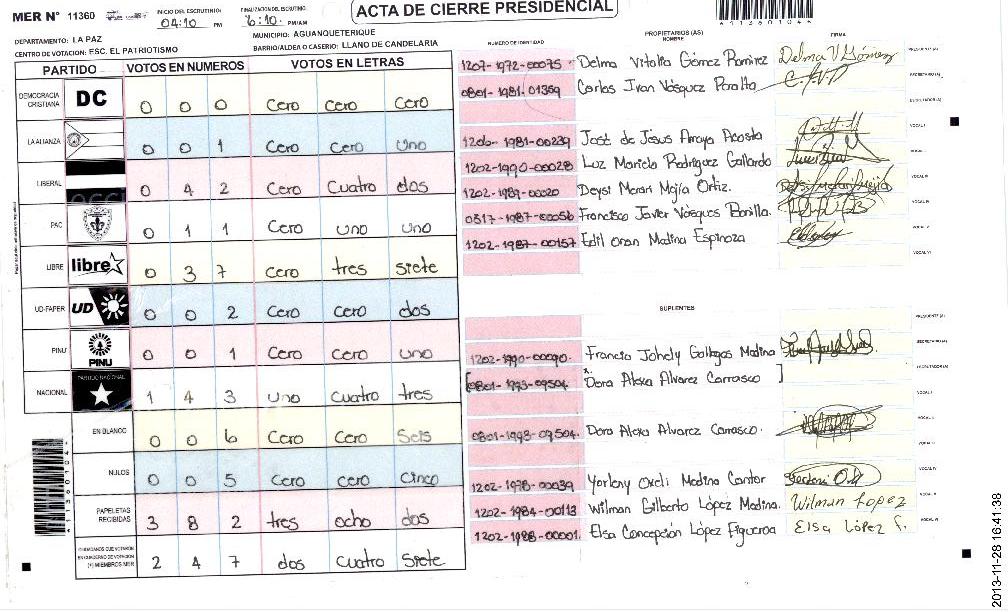 MER N° 11360
INICIO DEL ESCRUTINIO:
04:10 PM
FINALIZACION DEL ESCRUTINIO:
6:10. PM/AM
ACTA DE CIERRE PRESIDENCIAL
4113601041
DEPARTAMENTO: LA PAZ
MUNICIPIO: AGUANQUETERIQUE
CENTRO DE VOTACION: ESC. EL PATRIOTISMO
BARRIO/ALDEA O CASERIO: LLANO DE CANDELARIA
PARTIDO VOTOS EN NUMEROS VOTOS EN LETRAS
DEMOCRACIA CRISTIANA DC 0 0 0 Cero Cero Cero
LA ALIANZA 0 0 1 Cero Cero Uno
LIBERAL 0 4 2 Cero Cuatro dos
PAC 0 1 1 Cero uno uno
LIBRE libre 0 3 7 Cero tres siete
UD-FAPER UD 0 0 2 Cero Cero dos
PINU PINU 0 0 1 Cero Cero uno
NACIONAL PARTIDO NACIONAL 1 4 3 Uno Cuatro tres
EN BLANCO 0 0 6 Cero Cero Seis
NULOS 0 0 5 Cero cero Cinco
PAPELETAS RECIBIDAS 3 8 2 tres ocho dos
CIUDADANOS QUE VOTARON EN CUADERNO DE VOTACION (+) MIEMBROS MER 2 4 7 dos Cuatro Siete
NUMERO DE IDENTIDAD
PROPIETARIOS (AS)
NOMBRE
FIRMA
1207-1972-00075 Delma Vitalia Gómez Ramirez Delma V Gómez PRESIDENTE (A)
0801-1981-01369 Carlos Ivan Vásquez Peralta SECRETARIO (A)
ESCRUTADOR (A)
1206-1981-00239 José de Jesús Arroya Acosta VOCAL I
1202-1990-00028 Luz Mariela Rodríguez Gallardo VOCAL II
1202-1989-00020 Deysi Merari Mejía Ortiz. VOCAL III
0317-1987-00056 Francisco Javier Vásques Bonilla. VOCAL IV
1202-1987-00157 Edil Onan Medina Espinoza VOCAL V
VOCAL VI
SUPLENTES
PRESIDENTE (A)
1202-1990-00090. Francis Johely Gallegos Medina SECRETARIO (A)
[0801-1993-09504. Dora Alexa Alvarez Carrasco ] ESCRUTADOR (A)
VOCAL I
0801-1993-09504. Dora Alexa Alvarez Carrasco. VOCAL II
VOCAL III
1202-1978-00039 Yorleny Oxeli Medina Cantor VOCAL IV
1202-1984-00113 Wilman Gilberto López Medina. Wilman Lopez VOCAL V
1202-1988-00001. Elsa Concepción López Figueroa Elsa López F. VOCAL VI
4113601041
2013-11-28 16:41:38